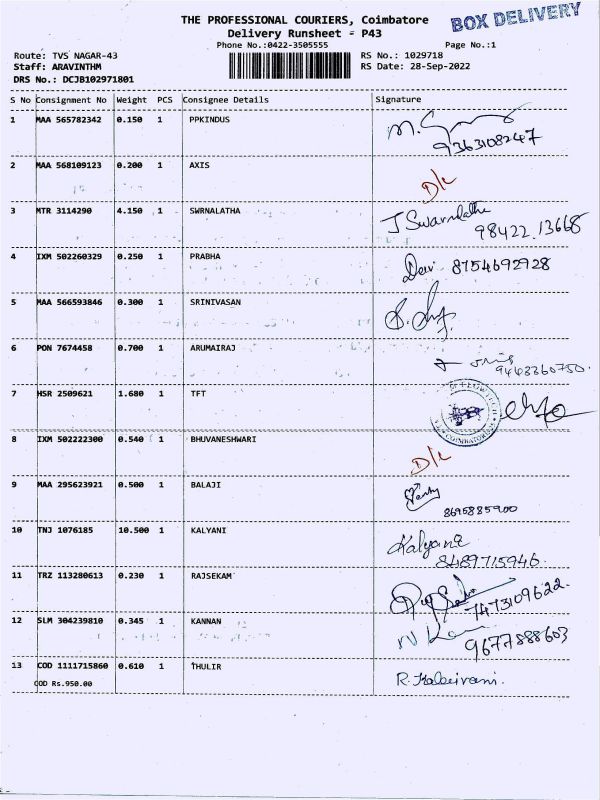 THE PROFESSIONAL COURIERS, Coimbatore
BOX DELIVERY
Delivery Runsheet - P43
Phone No.:0422-3505555
Page No.:1
Route: TVS NAGAR-43
RS No.: 1029718
Staff: ARAVINTHM
RS Date: 28-Sep-2022
DRS No.: DCJB102971801
S No Consignment No Weight PCS Consignee Details Signature
1 MAA 565782342 0.150 1 PPKINDUS
9363108247
2 MAA 568109123 0.200 1 AXIS
D/L
3 MTR 3114290 4.150 1 SWRNALATHA
J Swarnalatha
98422 13668
4 IXM 502260329 0.250 1 PRABHA
Devi 8754692928
5 MAA 566593846 0.300 1 SRINIVASAN
6 PON 7674458 0.700 1 ARUMAIRAJ
9443360750
7 HSR 2509621 1.680 1 TFT
COIMBATORE
8 IXM 502222300 0.540 1 BHUVANESHWARI
D/L
9 MAA 295623921 0.500 1 BALAJI
8695885900
10 TNJ 1076185 10.500 1 KALYANI
Kalyana
8489715946
11 TRZ 113280613 0.230 1 RAJSEKAM
7473109622
12 SLM 304239810 0.345 1 KANNAN
9677888603
13 COD 1111715860 0.610 1 THULIR
R. Kalaivani.
COD Rs.950.00